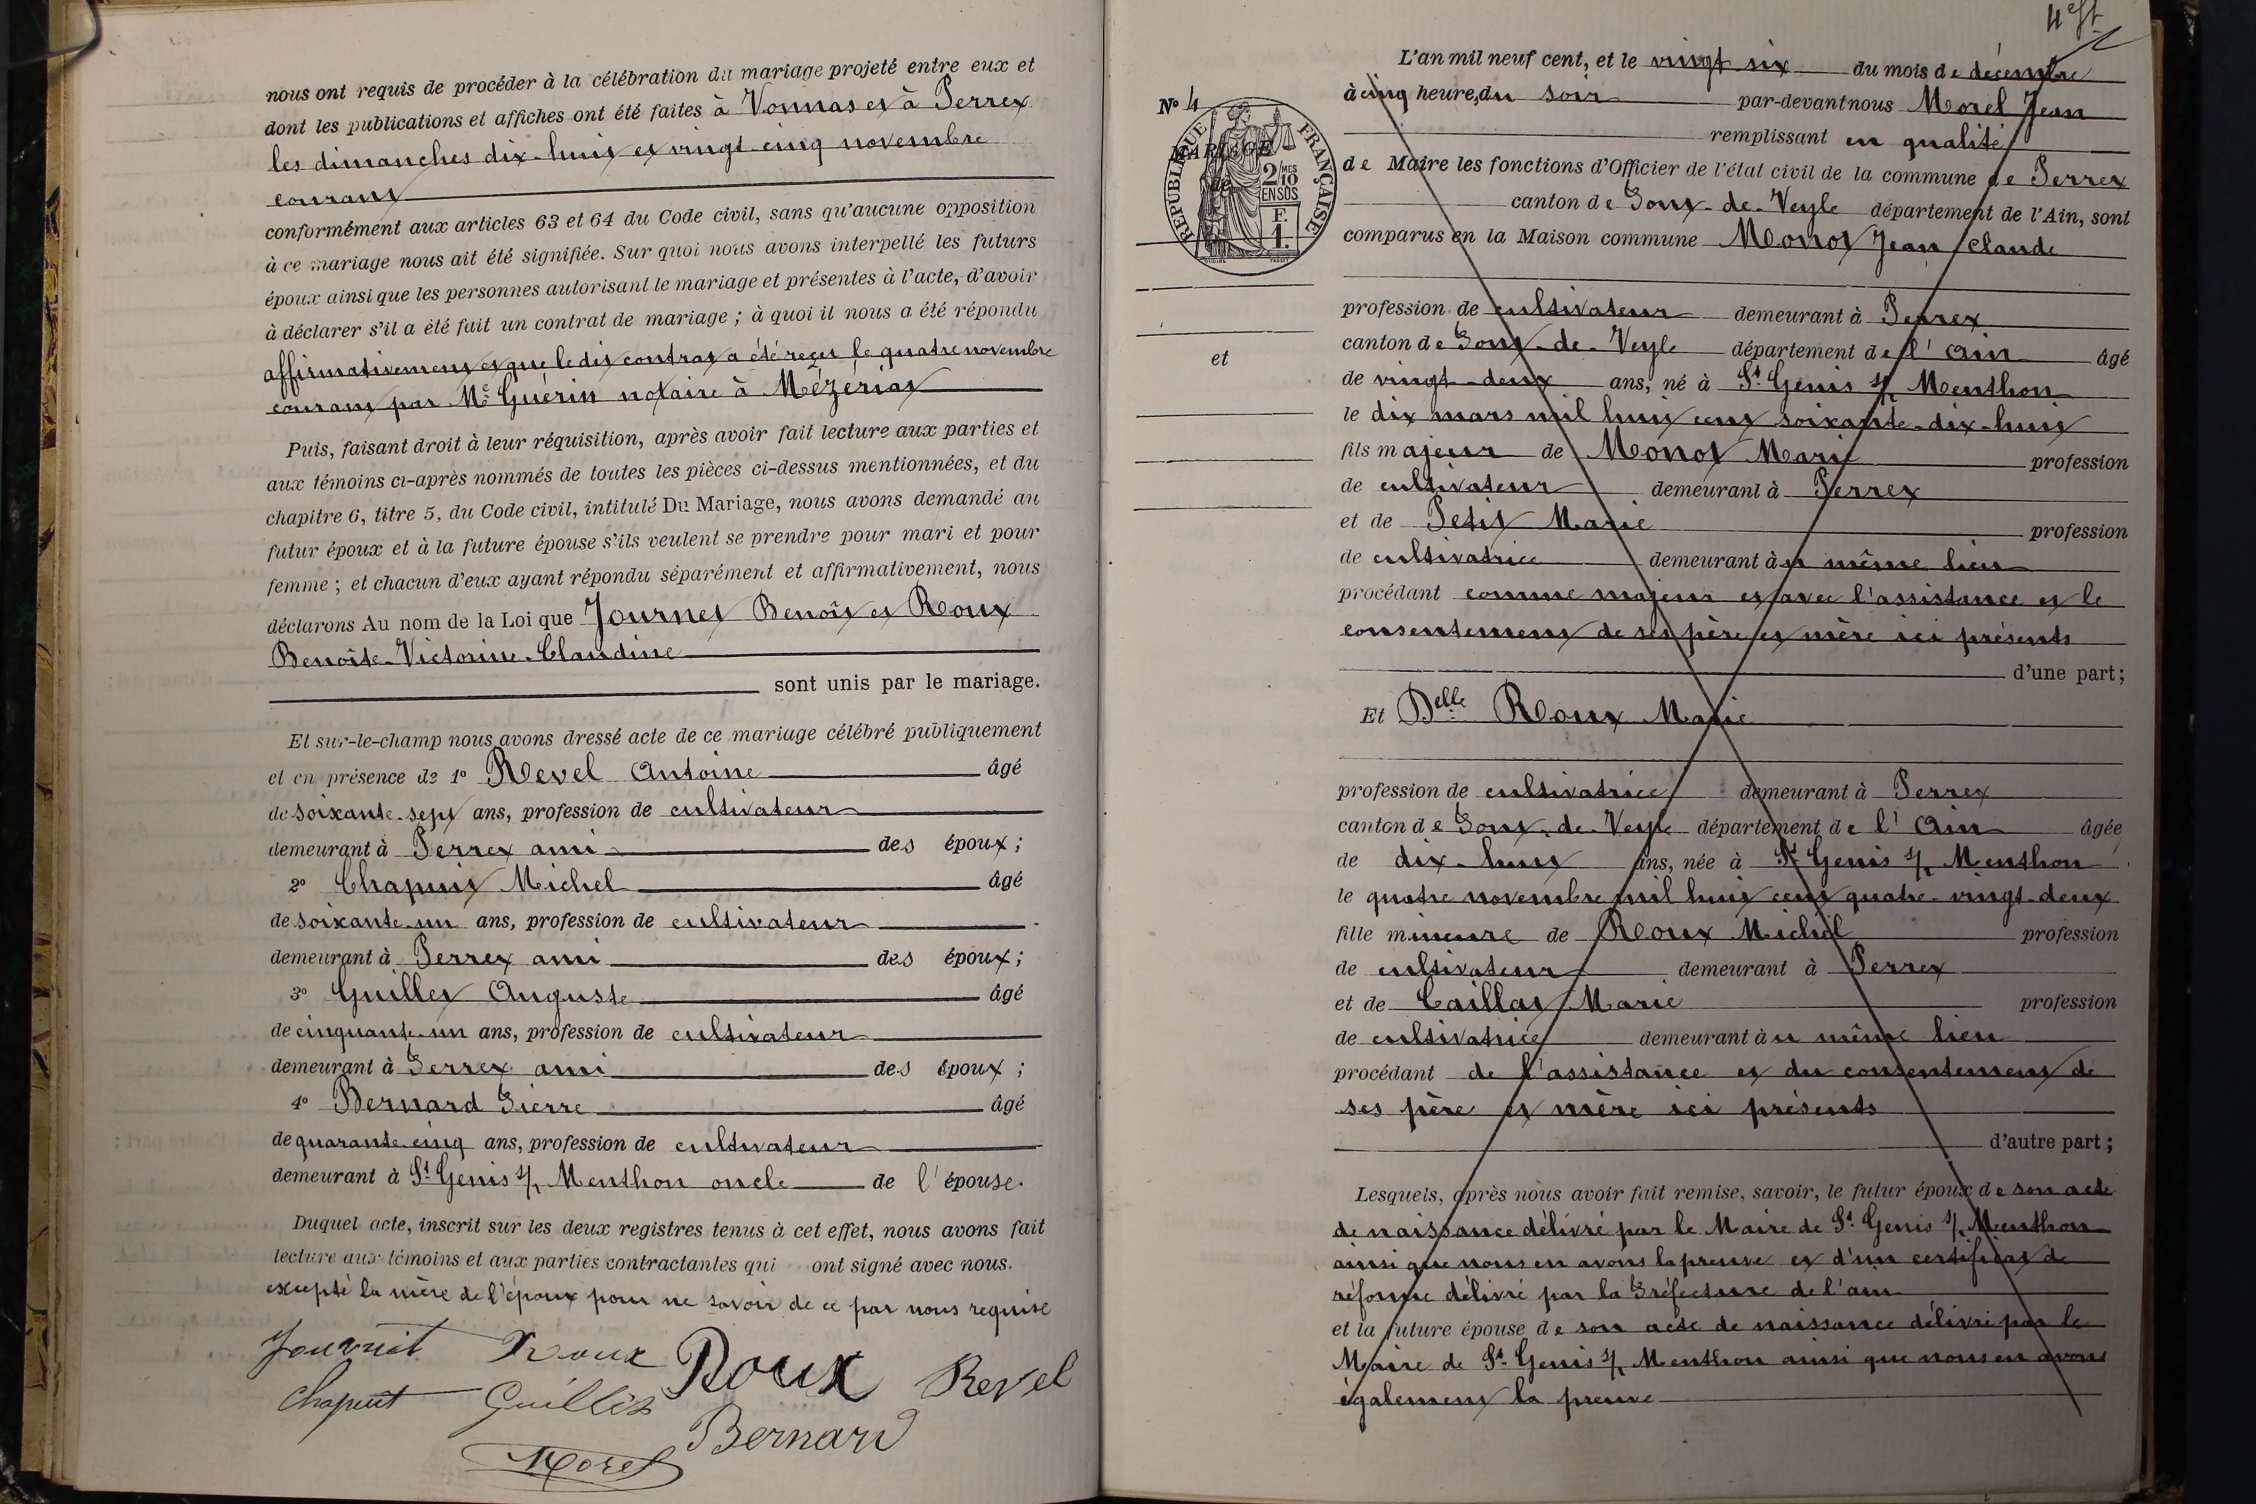 nous ont requis de procéder à la célébration du mariage projeté entre eux et
dont les publications et affiches ont été faites à Vonnas et à Perrex
les dimanches dix-huit et vingt-cinq novembre
courant
conformément aux articles 63 et 64 du Code civil, sans qu'aucune opposition
à ce mariage nous ait été signifiée. Sur quoi nous avons interpellé les futurs
époux ainsi que les personnes autorisant le mariage et présentes à l'acte, d'avoir
à déclarer s'il a été fait un contrat de mariage ; à quoi il nous a été répondu
affirmativement et que ledit contrat a été reçu le quatre novembre
courant par Me Guérin notaire à Mézériat
Puis, faisant droit à leur réquisition, après avoir fait lecture aux parties et
aux témoins ci-après nommés de toutes les pièces ci-dessus mentionnées, et du
chapitre 6, titre 5, du Code civil, intitulé Du Mariage, nous avons demandé au
futur époux et à la future épouse s'ils veulent se prendre pour mari et pour
femme ; et chacun d'eux ayant répondu séparément et affirmativement, nous
déclarons Au nom de la Loi que Journet Benoît et Roux
Benoîte-Victorine-Claudine
sont unis par le mariage.
Et sur-le-champ nous avons dressé acte de ce mariage célébré publiquement
et en présence de 1º Revel Antoine âgé
de soixante-sept ans, profession de cultivateur
demeurant à Perrex ami des époux ;
2º Chapuis Michel âgé
de soixante-un ans, profession de cultivateur
demeurant à Perrex ami des époux ;
3º Guillet Auguste âgé
de cinquante-un ans, profession de cultivateur
demeurant à Perrex ami des époux ;
4º Bernard Pierre âgé
de quarante-cinq ans, profession de cultivateur
demeurant à St Genis s/ Menthon oncle de l'épouse.
Duquel acte, inscrit sur les deux registres tenus à cet effet, nous avons fait
lecture aux témoins et aux parties contractantes qui ont signé avec nous.
excepté la mère de l'époux pour ne savoir de ce par nous requise
Journet Roux Roux Revel
Guillet
Bernard
Morel
L'an mil neuf cent, et le vingt-six du mois de décembre
à cinq heure,du soir par-devant nous Morel Jean
Nº 4
remplissant en qualité
MARIAGE
de
RÉPUBLIQUE FRANÇAISE
2/10 MES
EN SUS
F.
1.
de Maire les fonctions d'Officier de l'état civil de la commune de Perrex
canton de Pont-de-Veyle département de l'Ain, sont
comparus en la Maison commune Monot Jean Claude
profession de cultivateur demeurant à Perrex
canton de Pont-de-Veyle département de l'Ain âgé
et
de vingt-deux ans, né à St Genis s/ Menthon
le dix mars mil huit cent soixante-dix-huit
fils majeur de Monot Marie profession
de cultivateur demeurant à Perrex
et de Petit Marie profession
de cultivatrice demeurant àu même lieu
procédant comme majeur et avec l'assistance et le
consentement de ses père et mère ici présents
d'une part;
Et Delle Roux Marie
profession de cultivatrice demeurant à Perrex
canton de Pont-de-Veyle département de l'Ain âgée
de dix-huit ans, née à St Genis s/ Menthon
le quatre novembre mil huit cent quatre-vingt-deux
fille mineure de Roux Michel profession
de cultivateur demeurant à Perrex
et de Caillat Marie profession
de cultivatrice demeurant àu même lieu
procédant de l'assistance et du consentement de
ses père et mère ici présents
d'autre part;
Lesquels, après nous avoir fait remise, savoir, le futur époux de son acte
de naissance délivré par le Maire de St Genis s/ Menthon
ainsi que nous en avons la preuve et d'un certificat de
réforme délivré par la Préfecture de l'ain
et la future épouse de son acte de naissance délivré par le
Maire de St Genis s/ Menthon ainsi que nous en avons
également la preuve